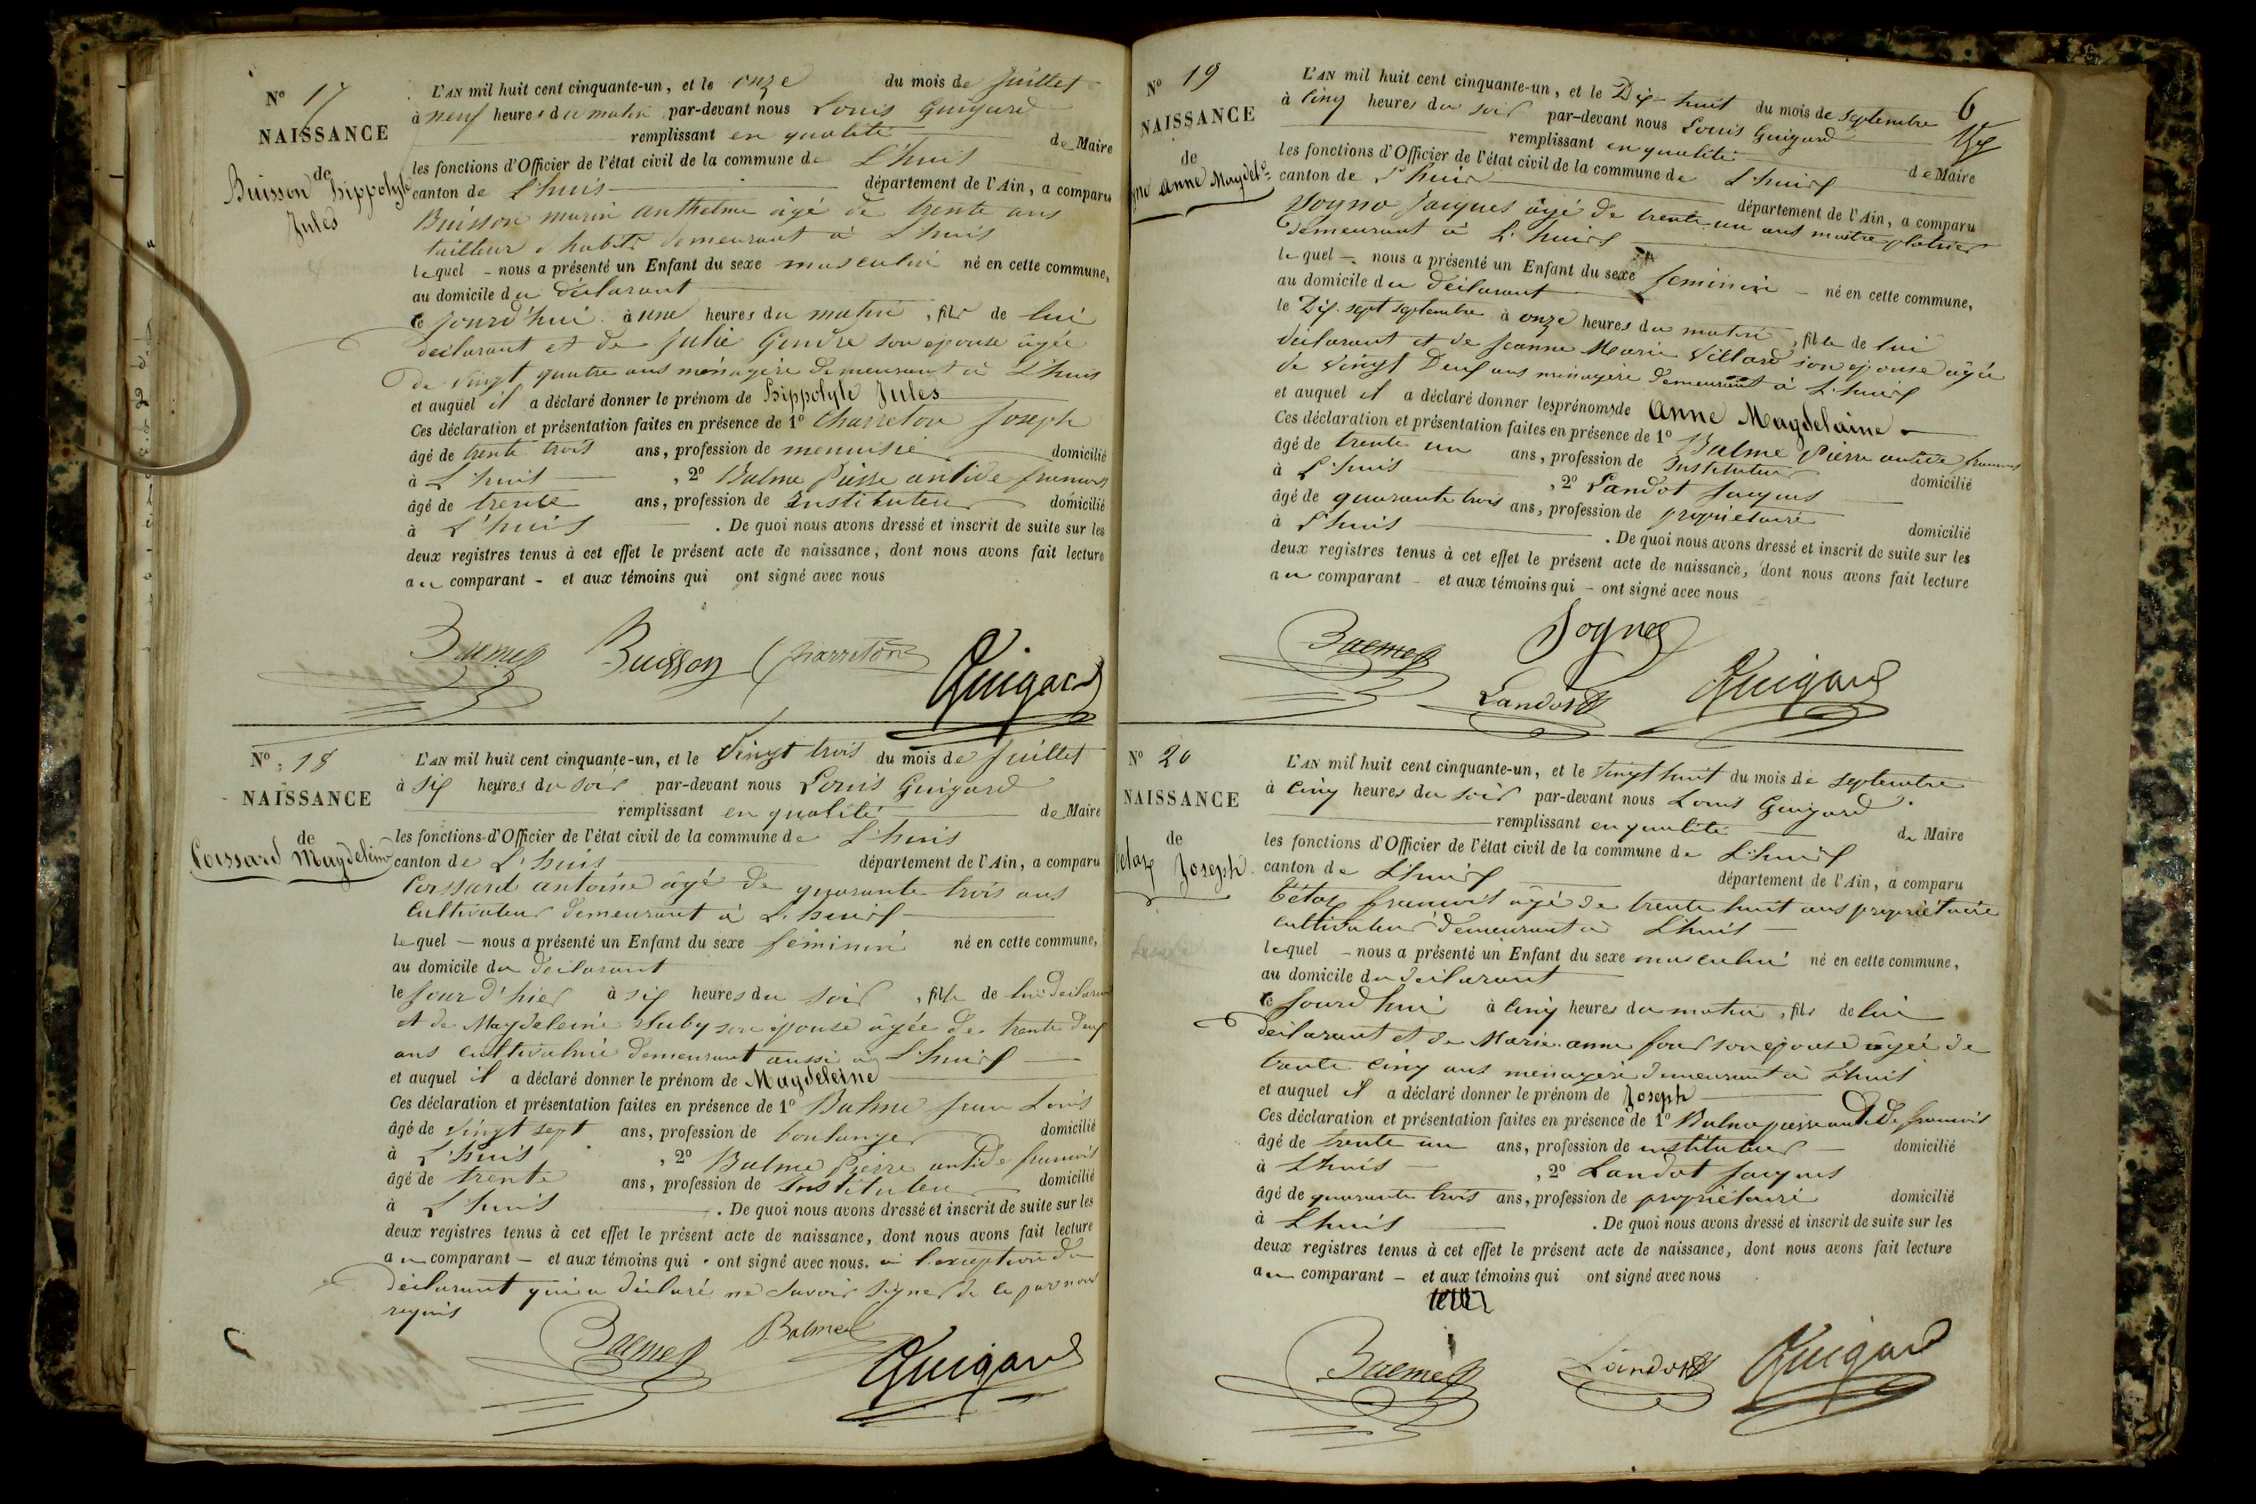 N° 17
NAISSANCE
de
Buisson hippolyte
Jules
L'AN mil huit cent cinquante-un, et le onze du mois de Juillet
à neuf heures du matin par-devant nous Louis Guigard
remplissant en qualité de Maire
les fonctions d'Officier de l'état civil de la commune de L'huis
canton de L'huis département de l'Ain, a comparu
Buisson marin anthelme âgé de trente ans
tailleur d'habits demeurant à L'huis
lequel - nous a présenté un Enfant du sexe masculin né en cette commune,
au domicile du déclarant
ce jourd'hui à une heures du matin, fils de lui
déclarant et de Julie Gendre son épouse âgée
de vingt quatre ans ménagère demeurant à L'huis
et auquel il a déclaré donner le prénom de hippolyte Jules
Ces déclaration et présentation faites en présence de 1° Charreton Joseph
âgé de trente trois ans, profession de menuisier domicilié
à L'huis, 2° Balme Pierre antide francois
âgé de trente ans, profession de Instituteur domicilié
à L'huis. De quoi nous avons dressé et inscrit de suite sur les
deux registres tenus à cet effet le présent acte de naissance, dont nous avons fait lecture
au comparant - et aux témoins qui ont signé avec nous
Balme Buisson Charreton Guigard
N° 18
NAISSANCE
de
Coissard Magdeleine
L'AN mil huit cent cinquante-un, et le Vingt trois du mois de Juillet
à six heures du soir par-devant nous Louis Guigard
remplissant en qualité de Maire
les fonctions d'Officier de l'état civil de la commune de L'huis
canton de L'huis département de l'Ain, a comparu
Coissard antoine âgé de quarante trois ans
Cultivateur demeurant à L'huis
lequel - nous a présenté un Enfant du sexe féminin né en cette commune,
au domicile du déclarant
le jour d'hier à six heures du soir, fille de lui déclarant
et de Magdeleine Suby son épouse âgée de trente deux
ans cultivatrice demeurant aussi à L'huis
et auquel il a déclaré donner le prénom de Magdeleine
Ces déclaration et présentation faites en présence de 1° Balme Jean Louis
âgé de vingt sept ans, profession de boulanger domicilié
à L'huis, 2° Balme Pierre antide francois
âgé de trente ans, profession de Instituteur domicilié
à L'huis. De quoi nous avons dressé et inscrit de suite sur les
deux registres tenus à cet effet le présent acte de naissance, dont nous avons fait lecture
au comparant - et aux témoins qui ont signé avec nous. à l'exception du
déclarant qui a déclaré ne savoir signer de ce par nous
requis
Balme Balme Guigard
6
N° 19
NAISSANCE
de
anne Magdel.e
L'AN mil huit cent cinquante-un, et le Dix-huit du mois de Septembre
à cinq heures du soir par-devant nous Louis Guigard
remplissant en qualité de Maire
les fonctions d'Officier de l'état civil de la commune de L'huis
canton de L'huis département de l'Ain, a comparu
Sogno Jacques âgé de trente-un ans maitre platrier
demeurant à L'huis
lequel - nous a présenté un Enfant du sexe feminin - né en cette commune,
au domicile du déclarant
le Dix sept septembre à onze heures du matin, fille de lui
déclarant et de Jeanne Marie Villard son épouse âgée
de vingt Deux ans ménagère demeurant à L'huis
et auquel il a déclaré donner les prénoms de Anne Magdelaine
Ces déclaration et présentation faites en présence de 1° Balme Pierre antide francois
âgé de trente un ans, profession de Instituteur domicilié
à L'huis, 2° Landot Jacques
âgé de quarante trois ans, profession de propriétaire domicilié
à L'huis. De quoi nous avons dressé et inscrit de suite sur les
deux registres tenus à cet effet le présent acte de naissance, dont nous avons fait lecture
au comparant - et aux témoins qui - ont signé avec nous
Balme Sogno Landot Guigard
N° 20
NAISSANCE
de
Joseph
L'AN mil huit cent cinquante-un, et le vingt huit du mois de septembre
à cinq heures du soir par-devant nous Louis Guigard
remplissant en qualité de Maire
les fonctions d'Officier de l'état civil de la commune de L'huis
canton de L'huis département de l'Ain, a comparu
francois âgé de trente huit ans propriétaire
cultivateur demeurant à L'huis
lequel - nous a présenté un Enfant du sexe masculin né en cette commune,
au domicile du déclarant
ce jourd'hui à cinq heures du matin, fils de lui
déclarant et de Marie anne son épouse âgée de
trente cinq ans ménagère demeurant à L'huis
et auquel il a déclaré donner le prénom de Joseph
Ces déclaration et présentation faites en présence de 1° Balme pierre antide francois
âgé de trente un ans, profession de instituteur domicilié
à L'huis, 2° Landot Jacques
âgé de quarante trois ans, profession de propriétaire domicilié
à L'huis. De quoi nous avons dressé et inscrit de suite sur les
deux registres tenus à cet effet le présent acte de naissance, dont nous avons fait lecture
au comparant - et aux témoins qui ont signé avec nous
Balme Landot Guigard